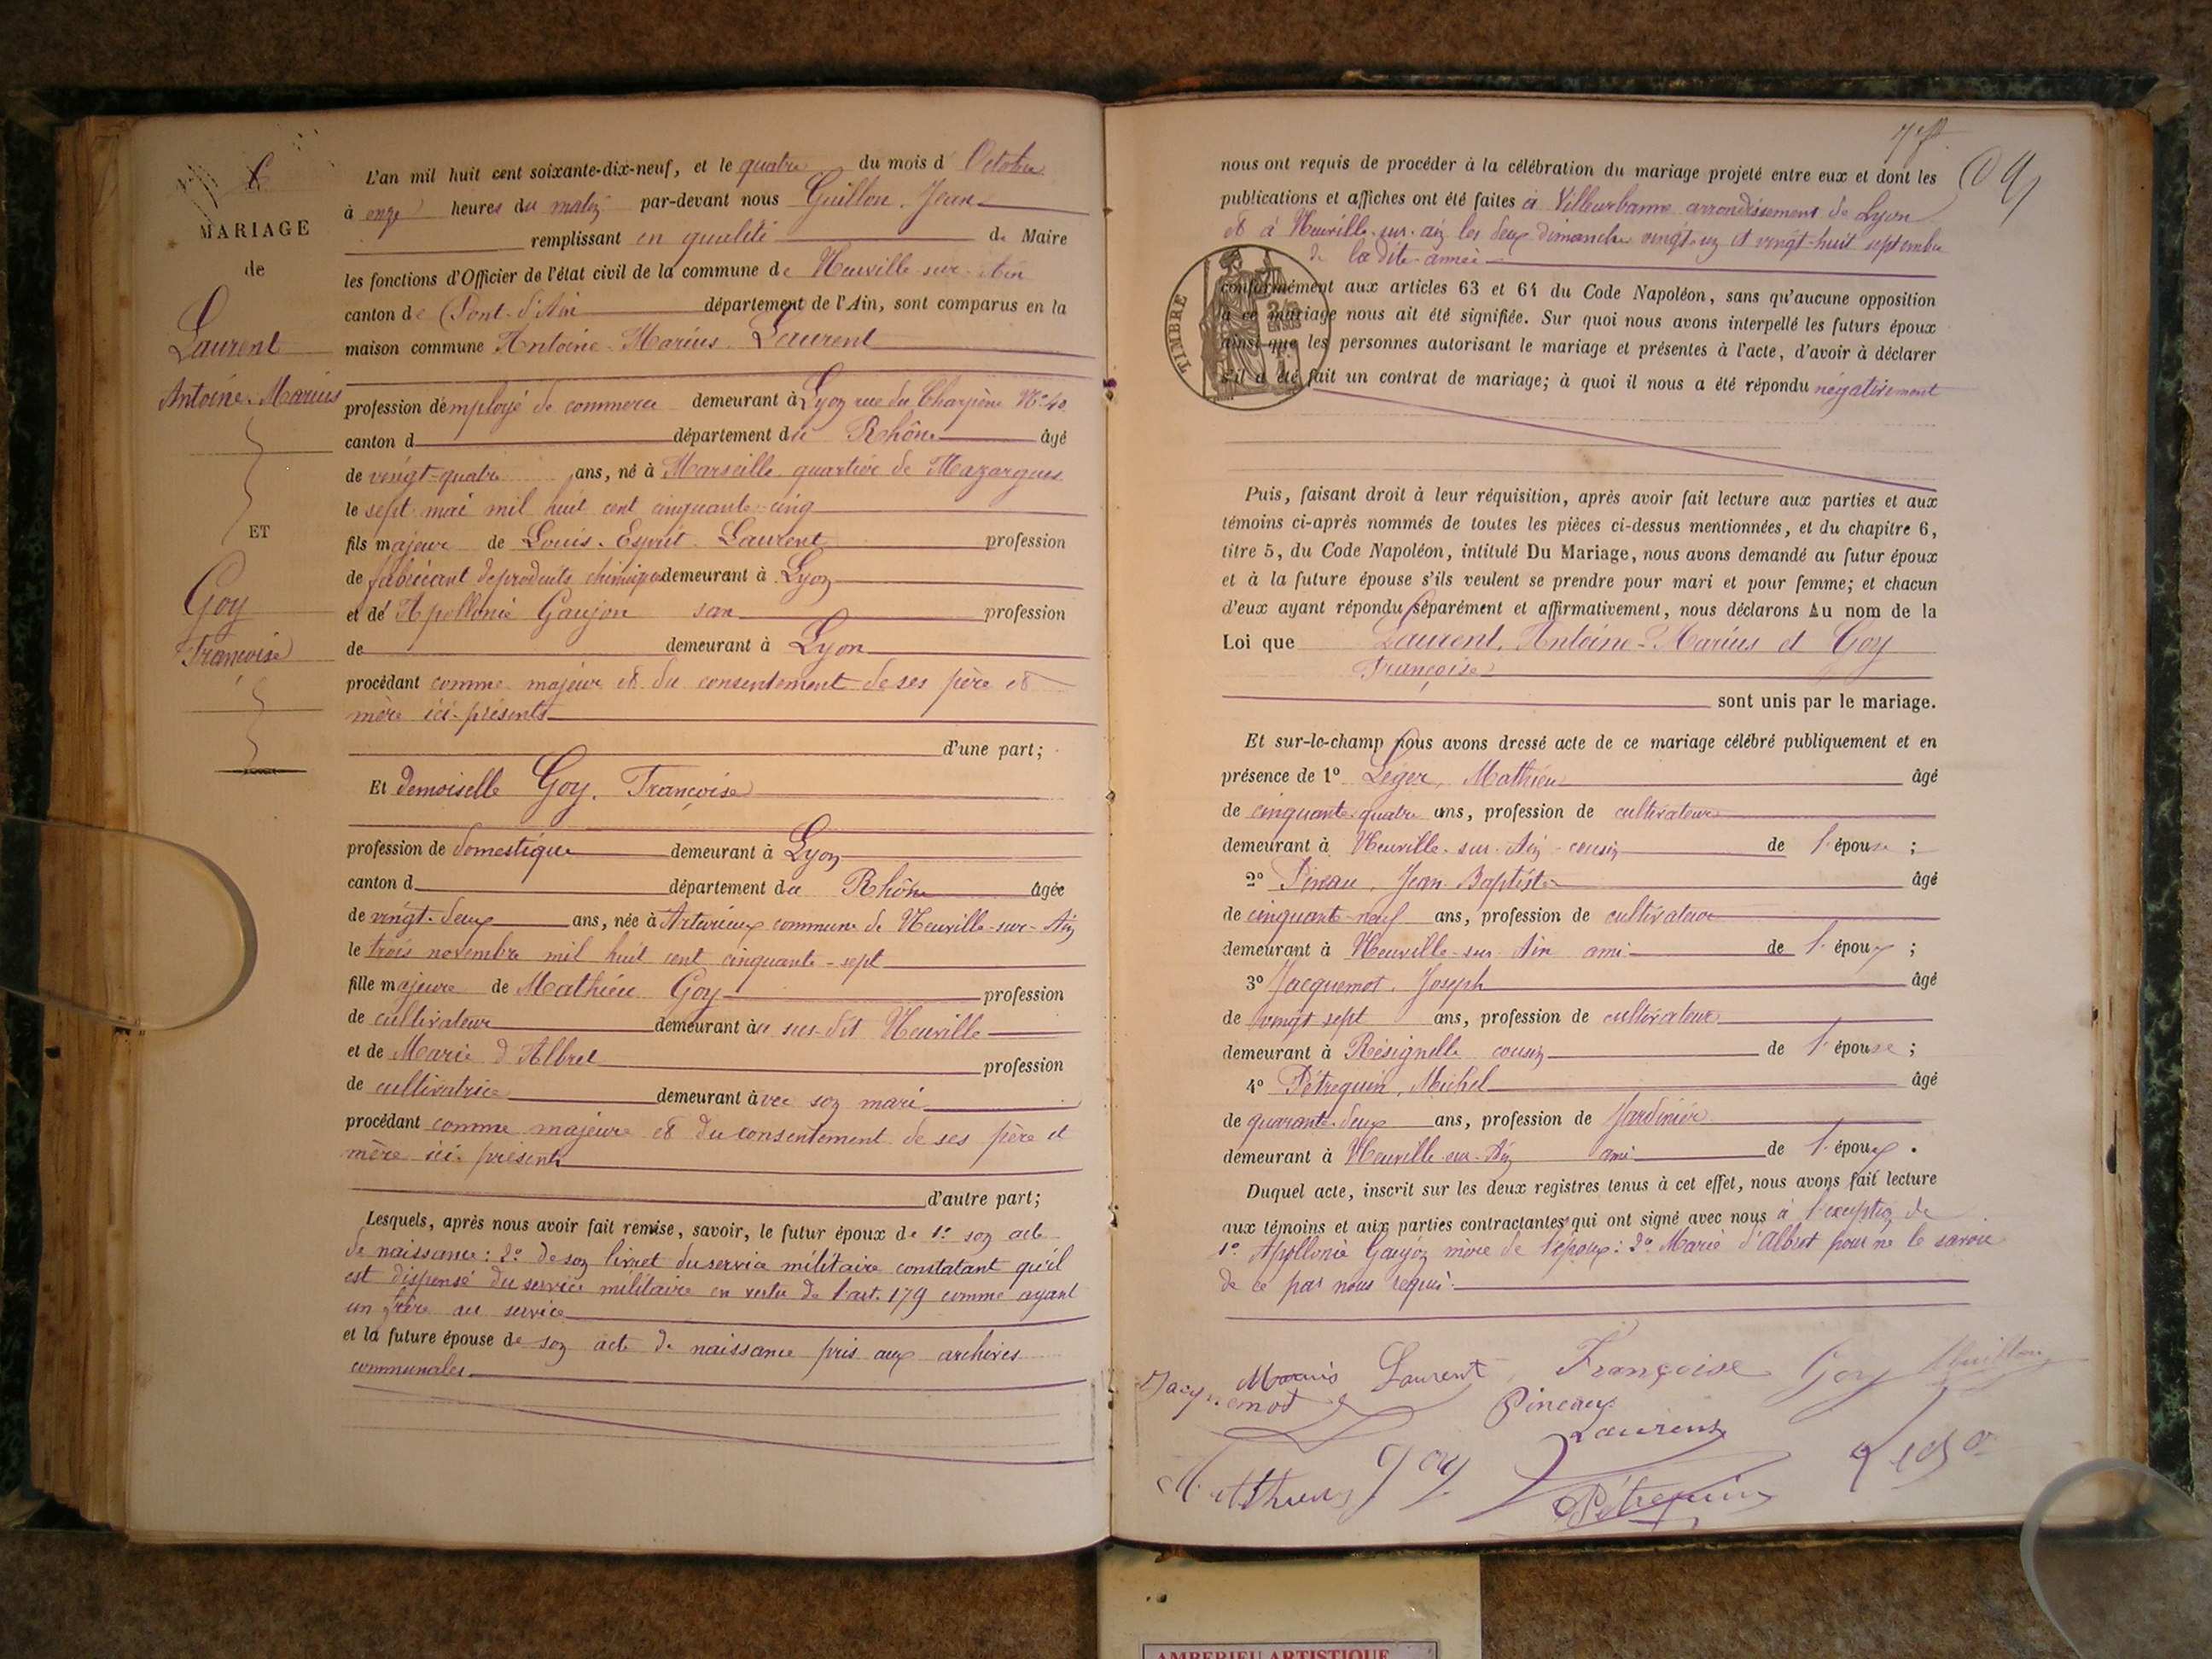 6
MARIAGE
de
Laurent
Antoine-Marius
ET
Goy
Françoise
L'an mil huit cent soixante-dix-neuf, et le quatre du mois d' Octobre
à onze heures du matin par-devant nous Guillon Jean
remplissant en qualité de Maire
les fonctions d'Officier de l'état civil de la commune de Neuville-sur-Ain
canton de Pont-d'Ain département de l'Ain, sont comparus en la
maison commune Antoine-Marius Laurent
profession d'employé de commerce demeurant à Lyon rue du Charpène No 40
canton d département du Rhône âgé
de vingt-quatre ans, né à Marseille quartier de Mazargues
le sept mai mil huit cent cinquante-cinq
fils majeur de Louis-Esprit Laurent profession
de fabricant de produits chimiques demeurant à Lyon
et de Apollonie Gaujon san profession
de demeurant à Lyon
procédant comme majeur et du consentement de ses père et
mère ici-présents
d'une part;
Et demoiselle Goy, Françoise
profession de domestique demeurant à Lyon
canton d département du Rhône âgée
de vingt-deux ans, née à commune de Neuville-sur-Ain
le trois novembre mil huit cent cinquante-sept
fille majeure de Mathieu Goy profession
de cultivateur demeurant au sus-dit Neuville
et de Marie d'Albret profession
de cultivatrice demeurant avec son mari
procédant comme majeure et du consentement de ses père et
mère ici-présents
d'autre part;
Lesquels, après nous avoir fait remise, savoir, le futur époux de 1o son acte
de naissance: 2o de son livret du service militaire constatant qu'il
est dispensé du service militaire en vertu de l'art. 179 comme ayant
un frère au service
et la future épouse de son acte de naissance pris aux archives
communales
nous ont requis de procéder à la célébration du mariage projeté entre eux et dont les
publications et affiches ont été faites à Villeurbanne arrondissement de Lyon
et à Neuville-sur-ain les deux dimanche vingt-un et vingt-huit septembre
de la dite année
TIMBRE
conformément aux articles 63 et 64 du Code Napoléon, sans qu'aucune opposition
à ce mariage nous ait été signifiée. Sur quoi nous avons interpellé les futurs époux
ainsi que les personnes autorisant le mariage et présentes à l'acte, d'avoir à déclarer
s'il a été fait un contrat de mariage; à quoi il nous a été répondu négativement
Puis, faisant droit à leur réquisition, après avoir fait lecture aux parties et aux
témoins ci-après nommés de toutes les pièces ci-dessus mentionnées, et du chapitre 6,
titre 5, du Code Napoléon, intitulé Du Mariage, nous avons demandé au futur époux
et à la future épouse s'ils veulent se prendre pour mari et pour femme; et chacun
d'eux ayant répondu séparément et affirmativement, nous déclarons Au nom de la
Loi que Laurent, Antoine-Marius et Goy
Françoise
sont unis par le mariage.
Et sur-le-champ nous avons dressé acte de ce mariage célébré publiquement et en
présence de 1o Léger, Mathieu âgé
de cinquante-quatre ans, profession de cultivateur
demeurant à Neuville-sur-Ain cousin de l'épouse ;
2o Pineau, Jean-Baptiste âgé
de cinquante-neuf ans, profession de cultivateur
demeurant à Neuville-sur-Ain ami de l'époux ;
3o Jacquemot, Joseph âgé
de vingt sept ans, profession de cultivateur
demeurant à Résignelle cousin de l'épouse ;
4o Pétrequin, Michel âgé
de quarante-deux ans, profession de Jardinier
demeurant à Neuville-sur-Ain ami de l'époux .
Duquel acte, inscrit sur les deux registres tenus à cet effet, nous avons fait lecture
aux témoins et aux parties contractantes qui ont signé avec nous à l'exception de
1o Apollonie Gaujon mère de l'époux: 2o Marie d'Albret pour ne le savoir
de ce par nous requis.
Marius Laurent Françoise Goy Guillon
Jacquemot Pineau
Laurent
Matthieu goy Pétrequin
AMBERIEU ARTISTIQUE